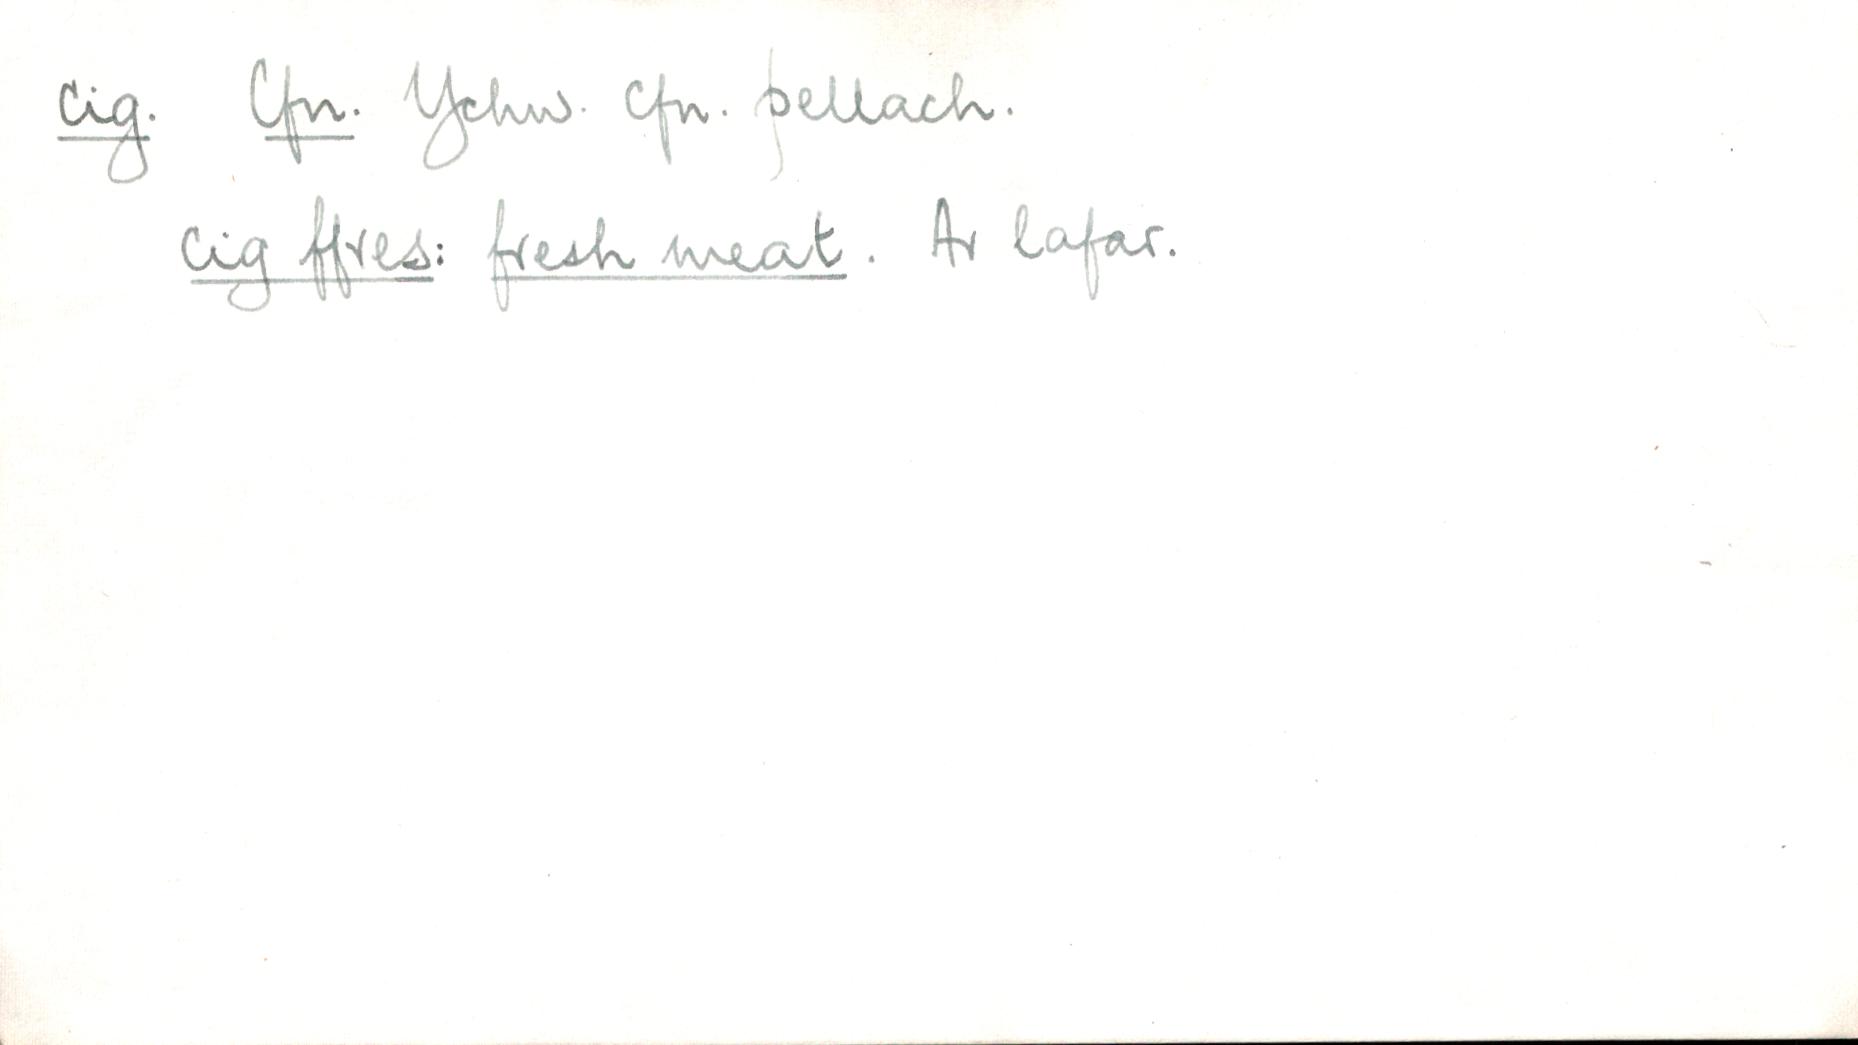 cig. Cfn. Ychw. cfn. pellach.
cig ffres: fresh meat. Ar lafar.